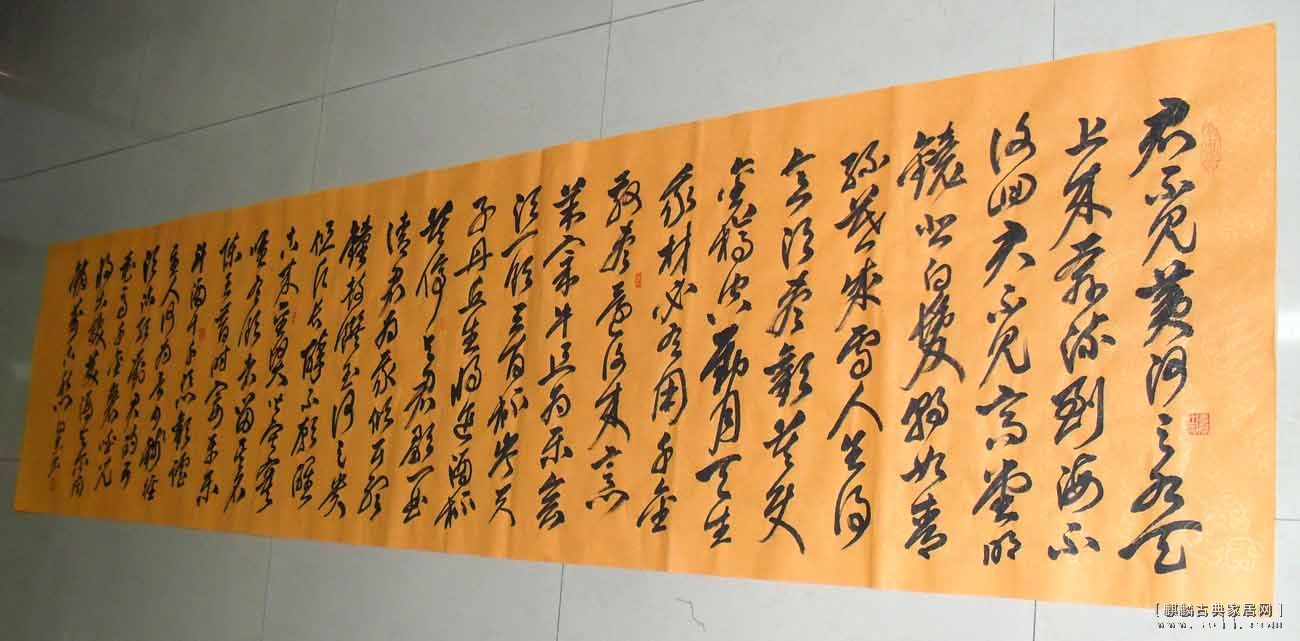 君不见黄河之水天
上来奔流到海不
復回君不见高堂明
镜悲白髮朝如青
丝暮成雪人生得
意须尽歡莫使
金樽空對月天生
我材必有用千金
散尽还復来烹
羊宰牛且为乐会
须一饮三百杯岑夫
子丹丘生将进酒杯
莫停与君歌一曲
请君为我倾耳听
鐘鼓饌玉何足贵
但愿长醉不愿醒
古来圣贤皆寂寞
惟有饮者留其名
陈王昔时宴平乐
斗酒十千恣歡谑
主人何为言少钱径
须沽取对君酌五
花马千金裘呼儿
将出换美酒与尔同
销万古愁
[麒麟古典家居网]